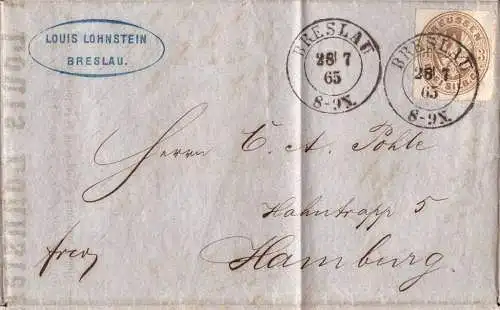 LOUIS LOHNSTEIN
BRESLAU.
BRESLAU
28 7
65
8-9N.
BRESLAU
28 7
65
8-9N.
PREUSSEN
Herrn C. A. Pohle
Hahntrapp 5
Hamburg.